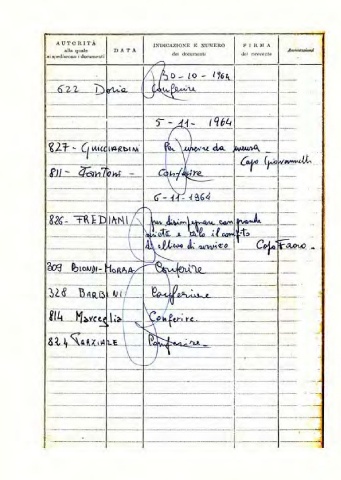 AUTORITÀ alla quale si spediscono i documenti
DATA
INDICAZIONE E NUMERO dei documenti
FIRMA del ricevente
Annotazioni
30-10-1964
622 Doria Conferire
5-11-1964
827 - GUICCIARDINI Per essere da
811 - Fantoni - Conferire
6-11-1964
826 - FREDIANI per disimpegnare con grande
e il compito
di allievo di servizio Capo Fauro -
809 BIONDI-MORRA Conferire
328 BARBINI Conferire
814 Marceglia Conferire.
824 TERZIALE Conferire -